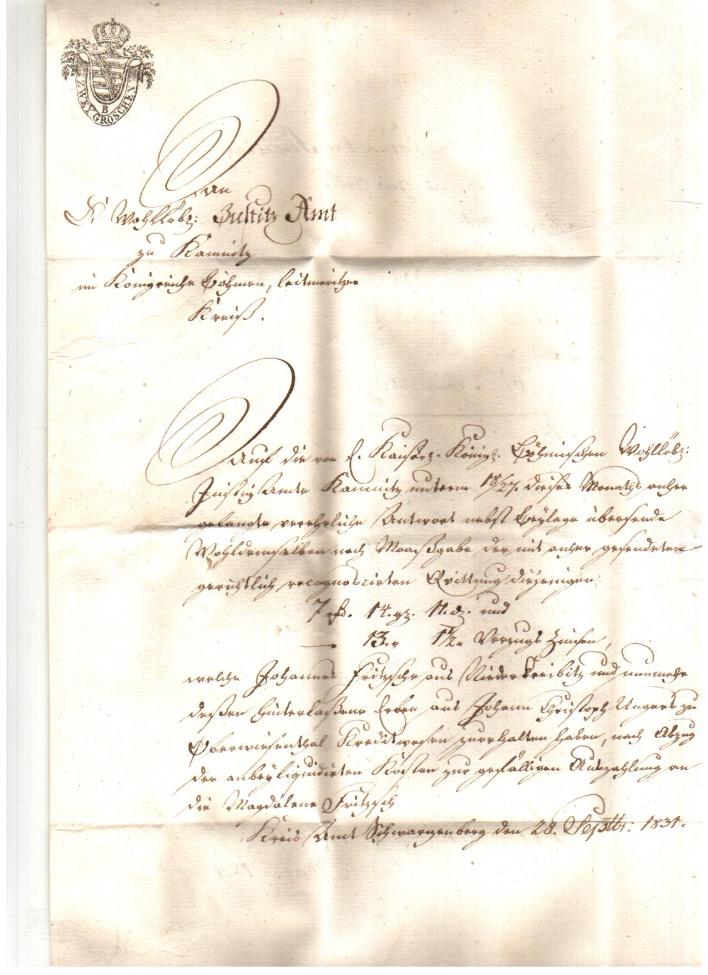 ZWEY GROSCHEN
B
An
K. Wohllöbl: Justitz Amt
zu Kamnitz
im Königreiche Böhmen, leitmeritzer
Kreiß.
Auf die von K. Kaiserl. Königl. Böhmischen Wohllöbl:
Justiz Amte Kamnitz unterm 18/27. dieses Monaths anher
gelangte verehrliche Antwort nebst Beylage übersende
Wohldemselben nach Maaßgabe der mit anher gesendeten
gerichtlich recognoscirten Quittung diejenigen
7 14. 11. und
— 13. 1½ Verzugs Zinsen,
welche Johannes Fritzsche aus Niederkreibitz und nunmehr
deßen hinterlaßene Erben aus Johann Christoph Ungers zu
Oberwiesenthal Kreditwesen zu erhalten haben, nach Abzug
der anbey liquidirten Kosten zur gefälligen Auszahlung an
die Magdalene Fritzsch
Kreis Amt Schwarzenberg den 28. Septbr: 1831.